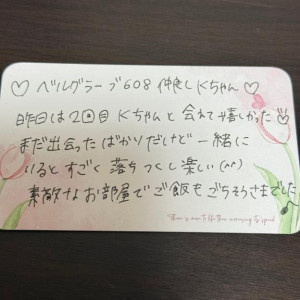 ♡ ベルグラーブ608 仲良しKちゃん ♡
昨日は2回目 Kちゃんと会えて嬉しかった♡
まだ出会ったばかりだけど一緒に
いるとすごく落ちつくし楽しい(^^)
素敵なお部屋でご飯もごちそうさまでした♪